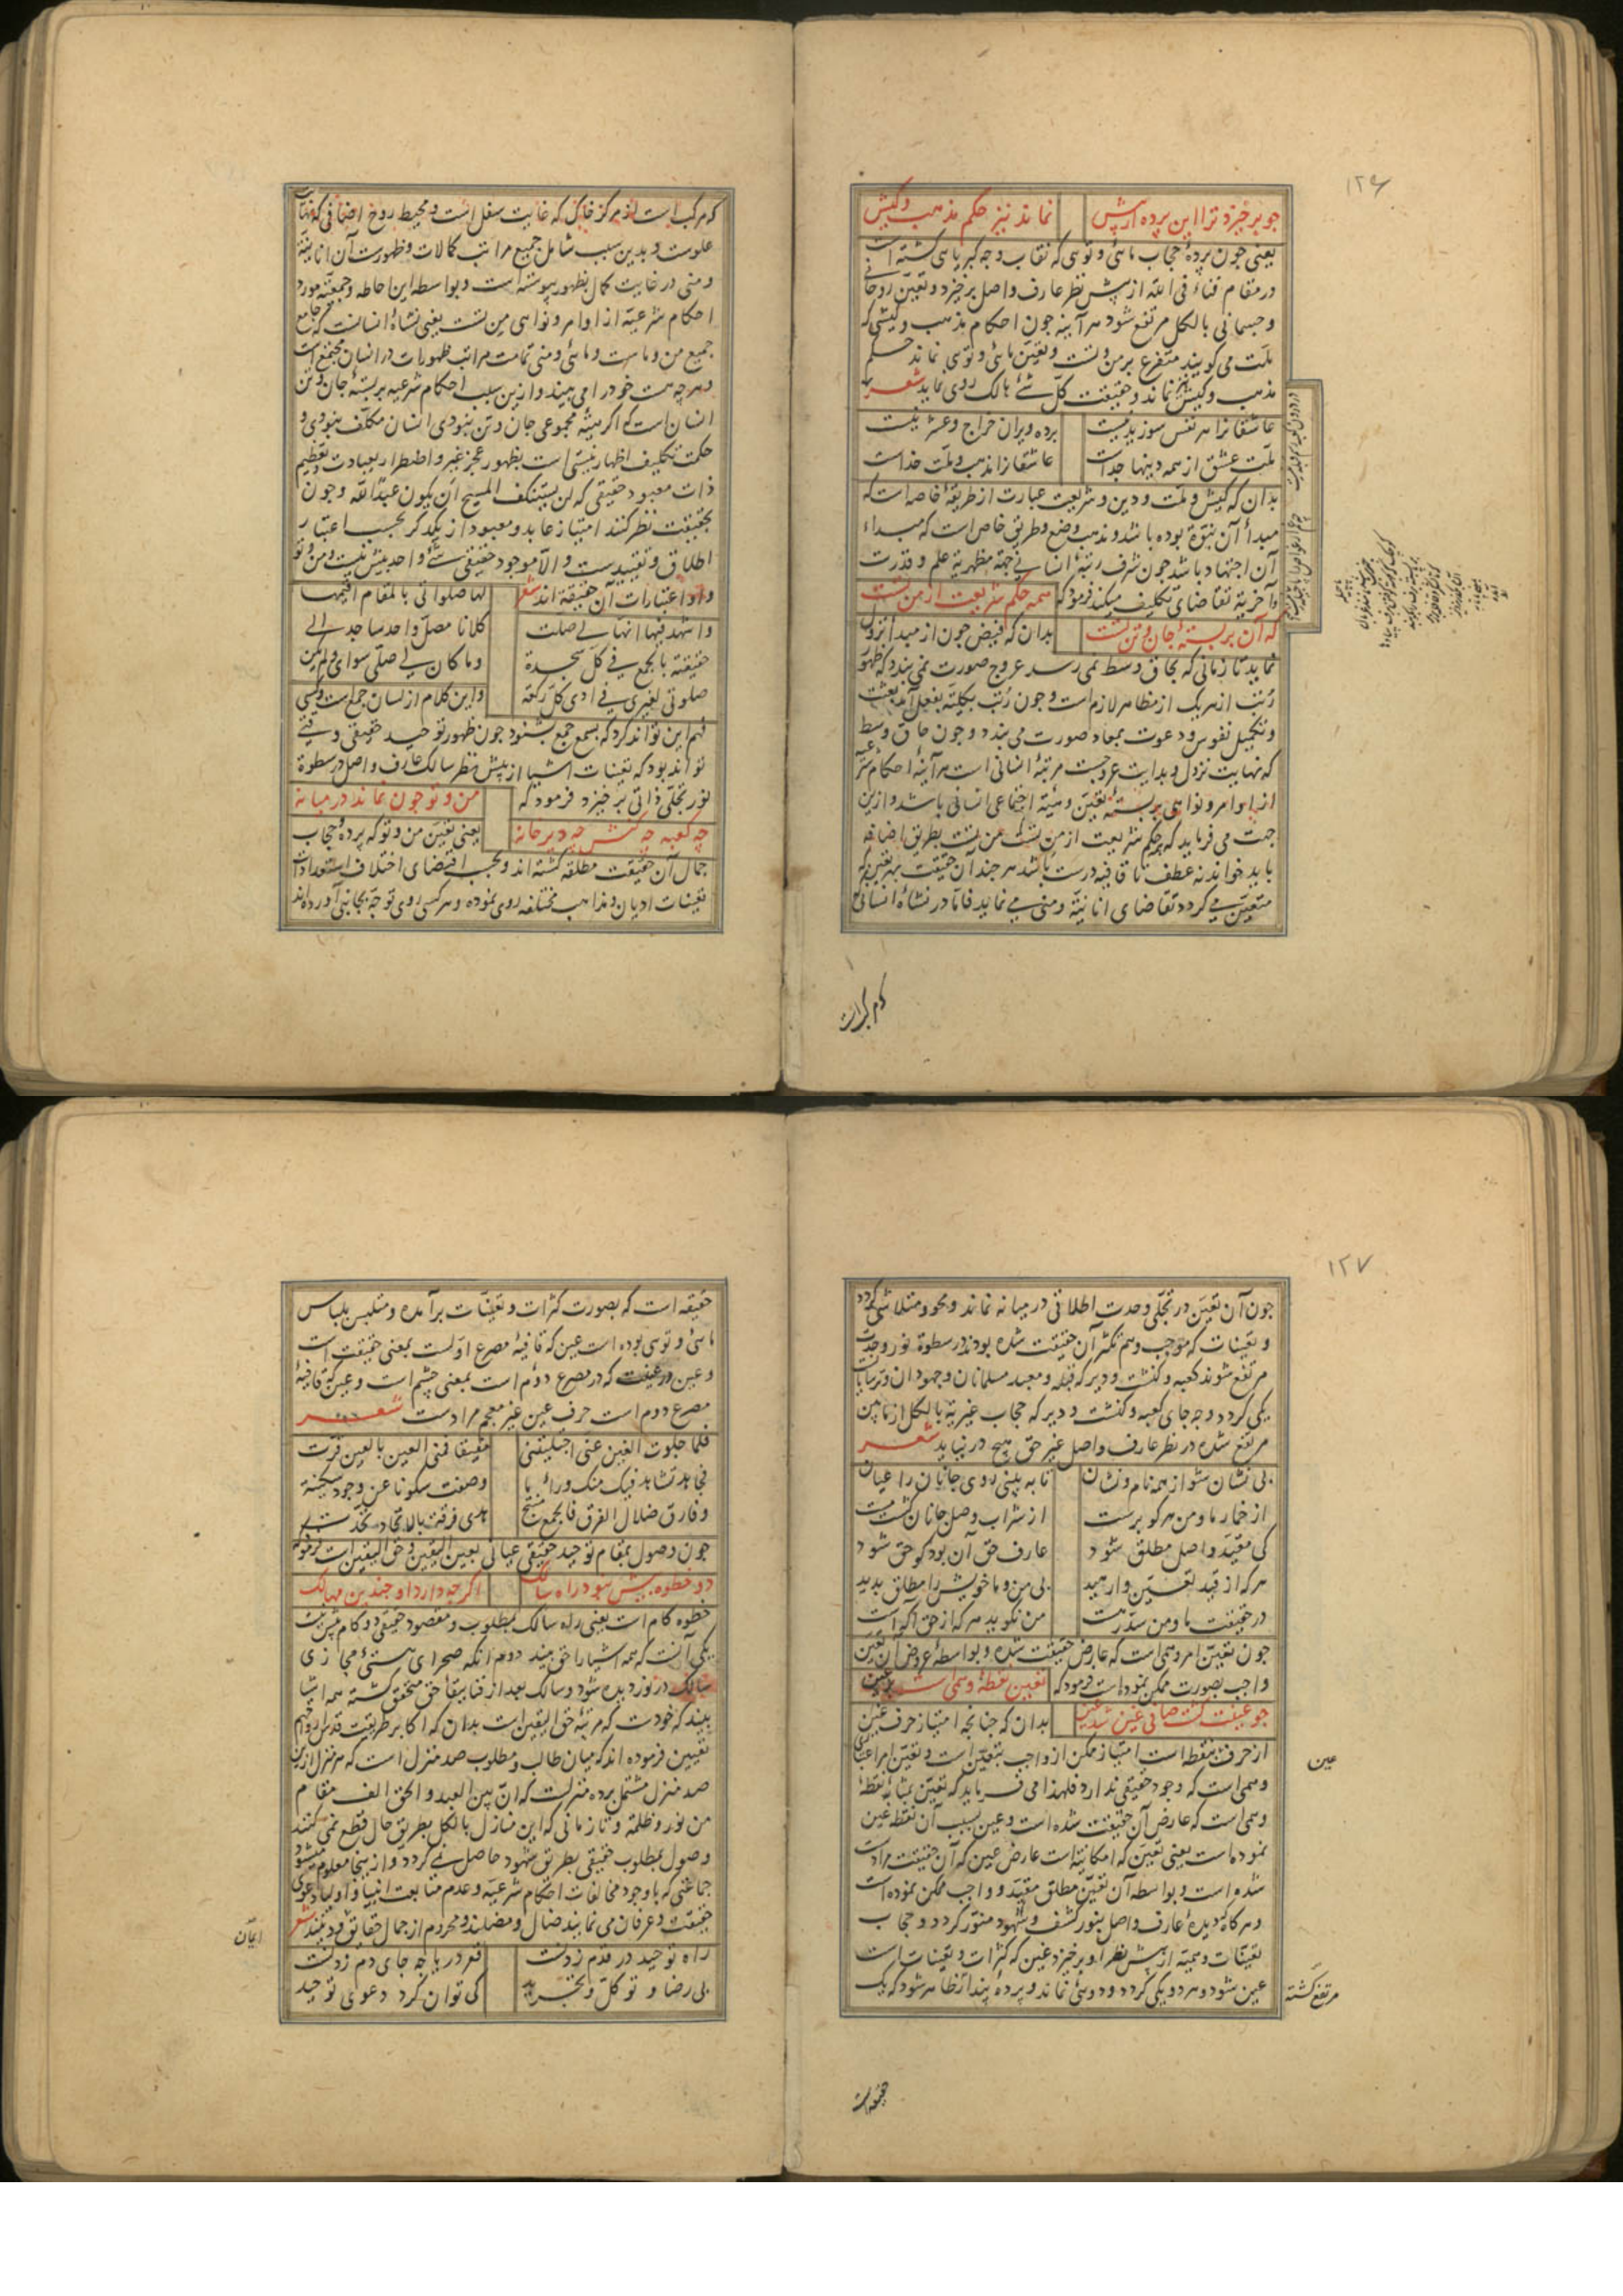 ۱۲۶
چو برخیزد ترا این پرده از پیش نماند نیز حکم مذهب و کیش
یعنی چون پردهٔ حجاب مائی و توئی که نقاب وجه کبریائی گشته است
در مقام فناء فی الله از پیش نظر عارف واصل برخیزد و تعین روحانی
و جسمانی بالکل مرتفع شود هرآینه چون احکام مذهب و کیشی که
ملت می گویند متفرع بر من و تست و تعین مائی و توئی نماند حکم
مذهب و کیش نیز نماند و حقیقت کل شئ هالک روی نماید شعر
عاشقانرا هر نفس سوزیدنیست برده ویران خراج و عشر نیست
ملت عشق از همه دینها جداست عاشقانرا مذهب و ملت خداست
در درون کعبه رسم قبله نیست چه غم ار غواص را پاچیله نیست
بدان که کیش و ملت و دین و شریعت عبارت از طریقهٔ خاصه است که
مبدأ آن نبوة بوده باشد و مذهب وضع و طریق خاص است که مبداء
آن اجتهاد باشد چون شرف رتبهٔ انسانی جهة مظهریة علم و قدرت
و آخریة تقاضای تکلیف میکند فرمود که همه حکم شریعت از من تست
که آن بربستهٔ جان و تن تست بدان که فیض چون از مبدأ نزول
نماید تا زمانی که بحاق وسط نمی رسد عروج صورت نمی بندد که ظهور
رتب از هر یک از مظاهر لازم است و چون رتب بکلیته بفعل آید بعثت
و تکمیل نفوس و دعوت بمعاد صورت می بندد و چون حاق وسط
که نهایت نزول و بدایت عروجست مرتبهٔ انسانی است هرآینه احکام شرعیه
از اوامر و نواهی بربستهٔ تعین و هیئة اجتماعی انسانی باشد و ازین
جهت می فرماید که حکم شریعت از من تست که من تست بطریق اضافه
باید خواند نه عطف تا قافیه درست باشد هر چند آن حقیقت بهر تعین که
متعین می گردد تقاضای انانیة و منی می نماید فاما در نشاهٔ انسانی
که مرکب است
که مرکب است از مرکز خاکی که غایت سفل است و محیط روح اضافی که نهایت
علوست و بدین سبب شامل جمیع مراتب کمالات و ظهورست آن انانیة
و منی در غایت کمال بظهور پیوسته است و بواسطه این احاطه و جمعیة مورد
احکام شرعیة از اوامر و نواهی من تست یعنی نشاهٔ انسانست که جامع
جمیع من و ماست و مائی و منی تمامت مراتب ظهورات در انسان مجتمع است
و هر چه هست خود را می بیند و ازین سبب احکام شرعیه بربستهٔ جان و تن
انسان است که اگر هیئة مجموعی جان و تن نبودی انسان مکلف نبودی و
حکمت تکلیف اظهار نیستی است بظهور عجز غیر و اضطرار بعبادت و تعظیم
ذات معبود حقیقی که لن یستنکف المسیح ان یکون عبدا لله و چون
بحقیقت نظر کنند امتیاز عابد و معبود از یکدگر بحسب اعتبار
اطلاق و تقییدست و الا موجود حقیقی شئ واحد بیش نیست و من و تو
و او اعتبارات آن حقیقة اند شعر لها صلواتی بالمقام اقیمها
و اشهد فیها انها لی صلت کلانا مصل واحد ساجد الی
حقیقته بالجمع فی کل سجدة و ما کان لی صلی سوای و لم تکن
صلوتی لغیری فی ادی کل رکعة و این کلام از لسان جمع است و کسی
فهم این تواند کرد که بسمع جمع بشنود چون ظهور توحید حقیقی وقتی
تواند بود که تعینات اشیا از پیش نظر سالک عارف واصل در سطوة
نور تجلی ذاتی برخیزد فرمود که من و تو چون نماند در میانه
چه کعبه چه کنش چه دیر خانه یعنی تعین من و تو که پردهٔ حجاب
جمال آن حقیقت مطلقه گشته اند و بحسب اقتضای اختلاف استعدادات
تعینات ادیان و مذاهب مختلفه روی نموده و هر کسی روی توجه بجانبی آورده اند
۱۲۷
چون آن تعین در تجلی وحدت اطلاقی در میانه نماند و محو و متلاشی گردد
و تعینات که موجب وهم تکثر آن حقیقت شده بودند در سطوة نور وحدت
مرتفع شوند کعبه و کنشت و دیر که قبله و معبد مسلمانان و جهودان و ترسایانست
یکی گردد و چه جای کعبه و کنشت و دیر که حجاب غیریة بالکل از مابین
مرتفع شده در نظر عارف واصل غیر حق هیچ در نیاید شعر
بی نشان شو از همه نام و نشان تا به بینی روی جانان را عیان
از خمار ما و من هر کو برست از شراب وصل جانان گشت مست
کی مقید واصل مطلق شود عارف حق آن بود کو حق شود
هر که از قید تعین وارهید بی من و ما خویش را مطلق بدید
در حقیقت ما و من سد رهست من نگوید هر که از حق آگه است
چون تعین امر وهمی است که عارض حقیقت شده و بواسطهٔ عروض آن تعین
واجب بصورت ممکن نموده است فرمود که تعین نقطهٔ وهمی است بر عین
چو عینت گشت صافی غین شد عین بدان که چنانچه امتیاز حرف غین
از حرف عین بنقطه است امتیاز ممکن از واجب بتعین است و تعین امر اعتباری
عین
وهمی است که وجود حقیقی ندارد فلهذا می فرماید که تعین بمثابهٔ نقطهٔ
وهمی است که عارض آن حقیقت شده است و عین بسبب آن نقطه غین
نموده است یعنی تعین که امکانیة است عارض عین که آن حقیقت مرادست
شده است و بواسطه آن تعین مطلق مقید و واجب ممکن نموده است
و هرگاه که دیدهٔ عارف واصل بنور کشف و شهود منور گردد و حجاب
تعینات وهمیه از پیش نظر او برخیزد غین که کثرات و تعینات است
عین شود و هر دو یکی گردد و دوئی نماند و پردهٔ پندار ظاهر شود که یک
مرتفع گشته
حقیقه است
حقیقه است که بصورت کثرات و تعینات برآمده و متلبس بلباس
مائی و توئی بوده است عین که قافیهٔ مصرع اولست بمعنی حقیقت است
و عین در عینت که در مصرع دوم است بمعنی چشم است و عین که قافیهٔ
مصرع دوم است حرف عین غیر معجم مرادست شعر
فلما جلوت الغین عنی اجتلیتنی مفیقا فمنی العین بالعین قرت
فجاهد تشاهد فیک منک وراء ما وصفت سکونا عن وجود سکینة
و فارق ضلال الفرق فالجمع منتج هدی فرقة بالاتحاد تحدت
چون وصول بمقام توحید حقیقی عیانی بعین الیقین و حق الیقین است فرمود
دو خطوه بیش نبود راه سالک اگر چه دارد او چندین مهالک
خطوه گام است یعنی راه سالک بمطلوب و مقصود حقیقی دو گام بیش نیست
یکی آنست که همه اشیا را حق بیند دوم آنکه صحرای هستی مجازی
سالک در نوردیده شود و سالک بعد از فنا ببقا حق متحقق گشته همه اشیا
بیند که خودست که مرتبهٔ حق الیقین است بدان که اکابر طریقت قدس ارواحهم
تعیین فرموده اند که میان طالب و مطلوب صد منزل است که هر منزل ازین
صد منزل مشتمل بر ده منزلست که ان بین العبد و الحق الف مقام
من نور و ظلمة و تا زمانی که این منازل بالکل بطریق حال قطع نمی کنند
وصول بمطلوب حقیقی بطریق شهود حاصل نمی گردد و ازینجا معلوم میشود
جماعتی که با وجود مخالفات احکام شرعیه و عدم متابعت انبیا و اولیا دعوی
حقیقت و عرفان می نمایند ضال و مضلند و محروم از جمال حقایق و دینند شعر
ایقان
راه توحید در قدم زدنست قعر دریا چه جای دم زدنست
بی رضا و توکل و تجرید کی توان کرد دعوی توحید